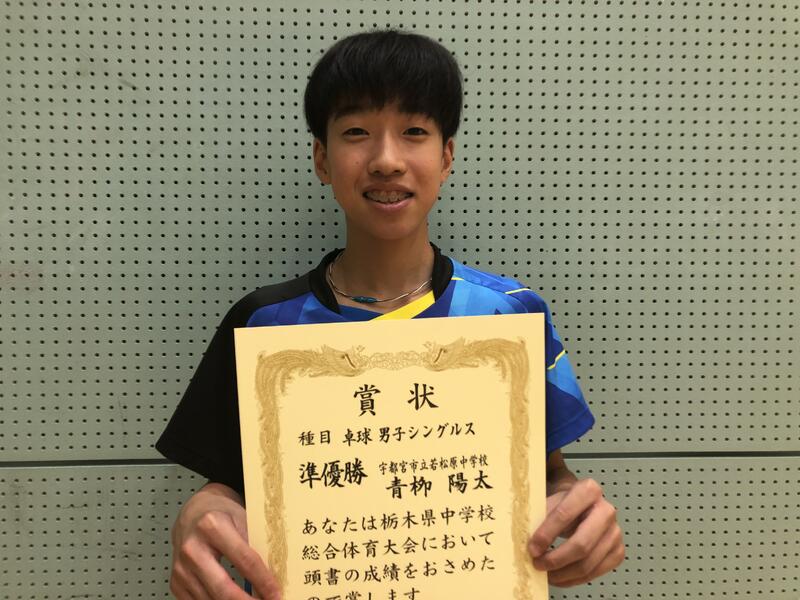 賞状
種目 卓球 男子シングルス
準優勝 宇都宮市立若松原中学校
青栁 陽太
あなたは栃木県中学校
総合体育大会において
頭書の成績をおさめた
ので賞します